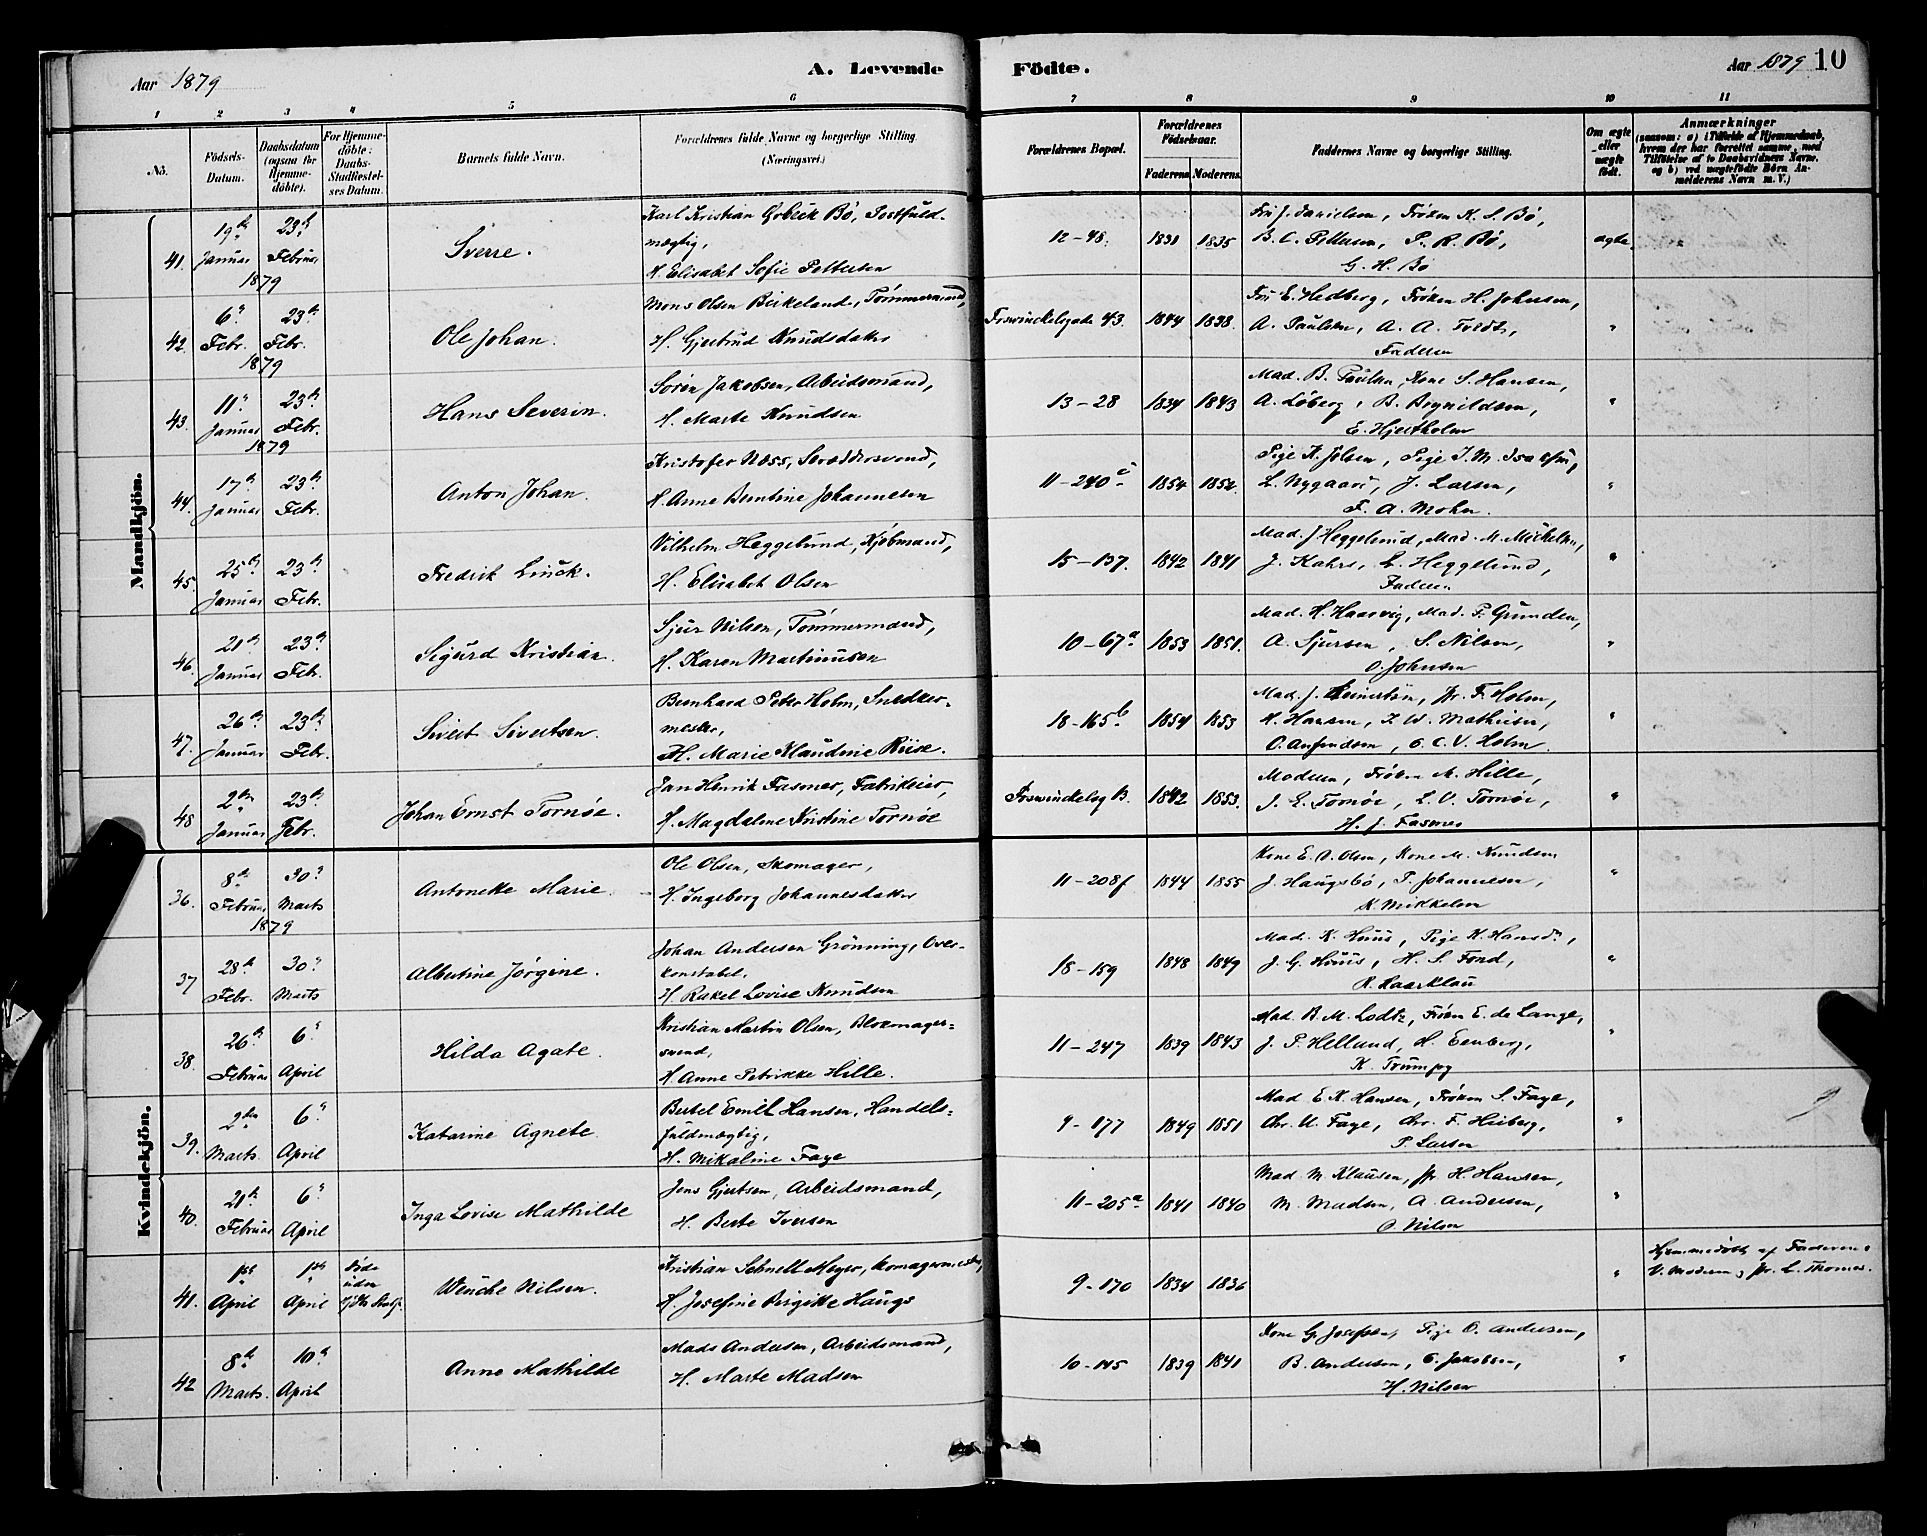 Aar 1879
A. Levende
Födte.
Aar 1879
10
1 2 3 4 5 6 7 8 9 10 11
No.
Födsels-Datum.
Daabsdatum (ogsaa for Hjemme-döbte).
For Hjemme-döbte: Daabs-Stadfestel-ses Datum.
Barnets fulde Navn.
Forældrenes fulde Navne og borgerlige Stilling (Næringsvei.)
Forældrenes Bopæl.
Forældrenes Födselsaar.
Faderens Moderens.
Faddernes Navne og borgerlige Stilling.
Om ægte eller uægte født.
Anmærkninger
(saasom: a) i Tilfælde af Hjemmedaab,
hvem der har forrettet samme, med
Tilföielse af to Daabsvidners Navne,
og b) ved uægtefödte Börn An-
melderens Navn m. V.)
Mandkjön.
41. 19de Januar 23de Februar Sverre. Karl Kristian Bø, Postfuld-
mægtig,
H. Elisabet Sofie Pettersen
12-48. 1831 1835 Fru J. Danielsen, Frøken K. S. Bø,
B. C. Pettersen, P. R. Bø,
G. H. Bø
ægte.
1879
42. 6" Febr. 23de Febr. Ole Johan. Mons Olsen Birkeland, Tømmermand,
H. Gjertrud Knudsdatter
43. 1844 1838. Fru E. Hedberg, Frøken H. Johnsen,
A. Paulsen, A. A. Tvedt,
Faderen
"
1879
43. 11" Januar 23de Febr. Hans Severin. Sören Jakobsen, Arbeidsmand,
H. Marte Knudsen
13-28 1834 1843 Mad. B. Paulsen, Kone S. Hansen,
A. Løberg, B. Brynildsen,
E. Hjertholm
"
1879
44. 17de Januar 23de Febr. Anton Johan. Kristofer Næss, Skræddersvend,
H. Anne Berntine Johannesen
11-240 1854 1852. Pige K. Jolsen, Pige I. M. Isaksen,
L. Nygaard, J. Larsen,
F. A. Mohn.
"
45. 25de Januar 23de Febr. Fredrik Linck. Vilhelm Heggelund, Kjøbmand,
H. Elisabet Olsen
15-137. 1842 1841 Mad. J. Heggelund, Mad. M. Michelsen,
J. Kahrs, L. Heggelund,
Faderen.
"
46. 21de Januar 23de Febr. Sigurd Kristian. Sjur Nilsen, Tømmermand,
H. Karen Martinusen
10-67a 1853 1851. Mad. H. Haasvig, Mad. F. Grunden,
A. Sjursen, S. Nilsen,
O. Johnsen
"
47. 26de Januar 23de Febr. Sivert Sivertsen. Bernhard Peter Holm, Snedker-
mester,
H. Marie Klaudine Riise.
18-165b 1854 1853 Mad. J. Reinertsen, Jfr. F. Holm,
H. Hansen, F. W. Mathisen,
O. Anfindsen, O. C. V. Holm.
"
48. 2den Januar 23de Febr. Johan Ernst Tornöe. Jan Henrik Fasmer, Fabrikeier,
H. Magdalene Kristine Tornöe
1842 1853. Moderen, Frøken M. Hille,
J. E. Tornöe, L. V. Tornöe,
H. J. Fasmer
"
Kvindekjön.
36. 8de Februar 30" Marts Antonette Marie. Ole Olsen, Skomager,
H. Ingeborg Johannesdatter
11-208f 1844 1855 Kone E. O. Olsen, Kone M. Knudsen
J. Haugsbö, P. Johannesen,
K. Mikkelsen
"
1879
37 28de Febr. 30" Marts Albertine Jørgine. Johan Andersen Grönning, Over-
konstabel,
H. Rakel Lovise Knudsen
18-159 1848 1849 Mad. K. Huus, Pige K. Hansdr.,
J. G. Huus, H. S. Fond,
R. Kaarklau
"
38. 26de Februar 6" April Hilda Agate. Kristian Martin Olsen, Blokmager-
svend,
H. Anne Petrikke Hille.
11-247 1839 1843 Mad. B. M. Lodtz, Frøken E. de Lange,
J. P. Hellund, H. Eenberg,
K. Trumpy
"
39. 2den Marts. 6" April Katarine Agnete. Bertel Emil Hansen, Handels-
fuldmægtig,
H. Mikaline Faye
9-177 1849 1851 Mad. E. K. Hansen, Frøken S. Faye,
Chr. U. Faye, Chr. F. Heiberg,
P. Larsen
"
40. 21de Februar 6" April Inga Lovise Mathilde Jens Gjertsen, Arbeidsmand,
H. Berte Iversen
11-205a 1841 1840 Mad M Klausen, Jfr H. Hansen,
M. Madsen, A. Andersen,
O. Nilsen
"
41. 1ste April 1ste April Døde uden Wenche Nilsen. Kristian Schnell Meyer, Skomagermester,
H. Josefine Birgitte Haugs
9-170 1834 1836 " Hjemmedøbt af Faderen.
V. Moderen, Jfr. L. Thomas.
42 8de Marts. 10de April Anna Mathilde Mads Andersen, Arbeidsmand,
H. Marte Madsen
10-145 1839 1841 Kone G. Josefsen, Pige O. Andersen,
B. Andersen, E. Jakobsen,
H. Nilsen
"